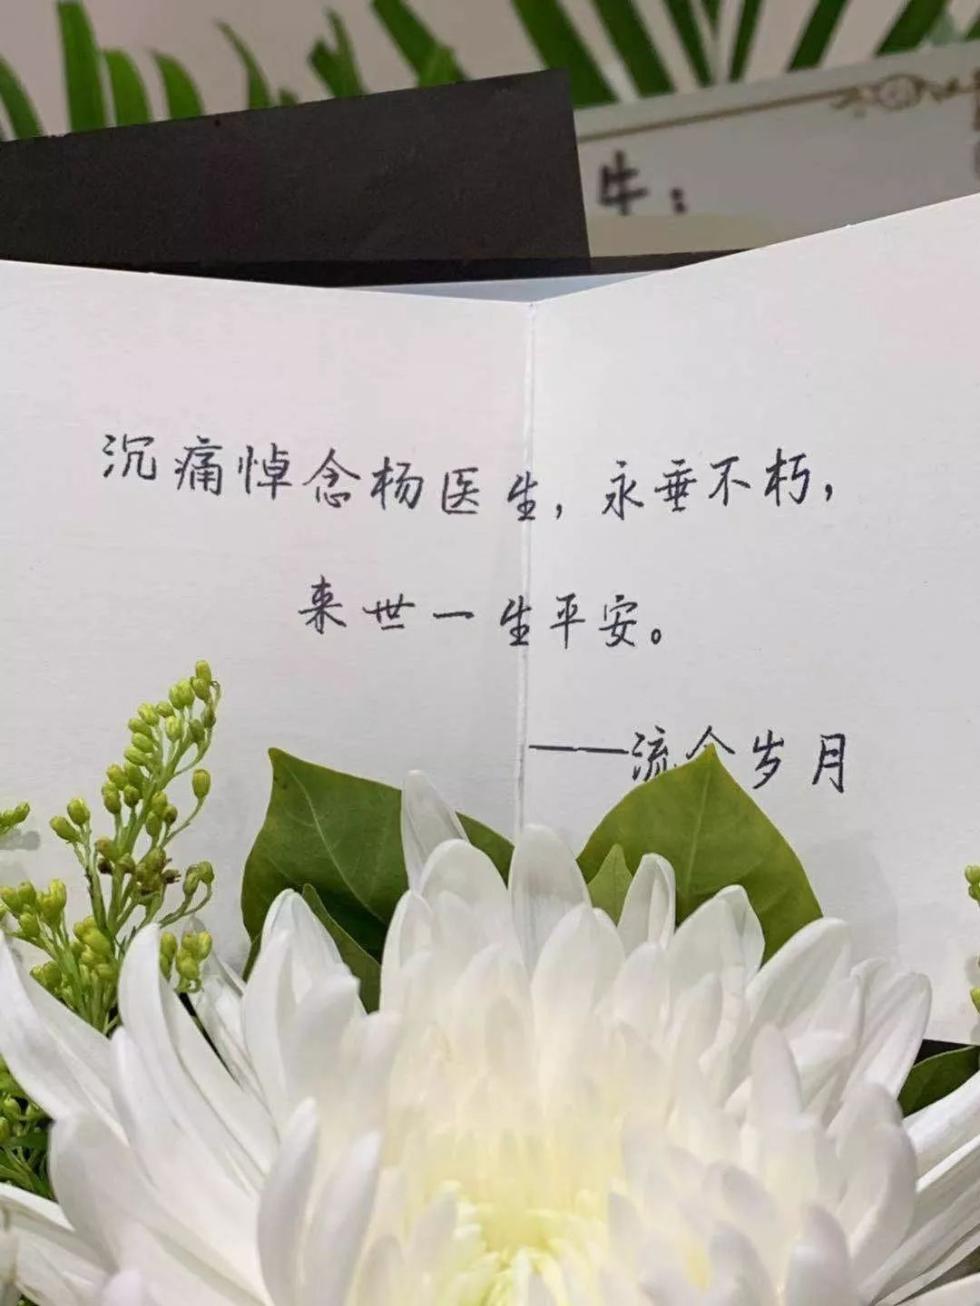 牛:
沉痛悼念杨医生,永垂不朽,
来世一生平安。
——流金岁月